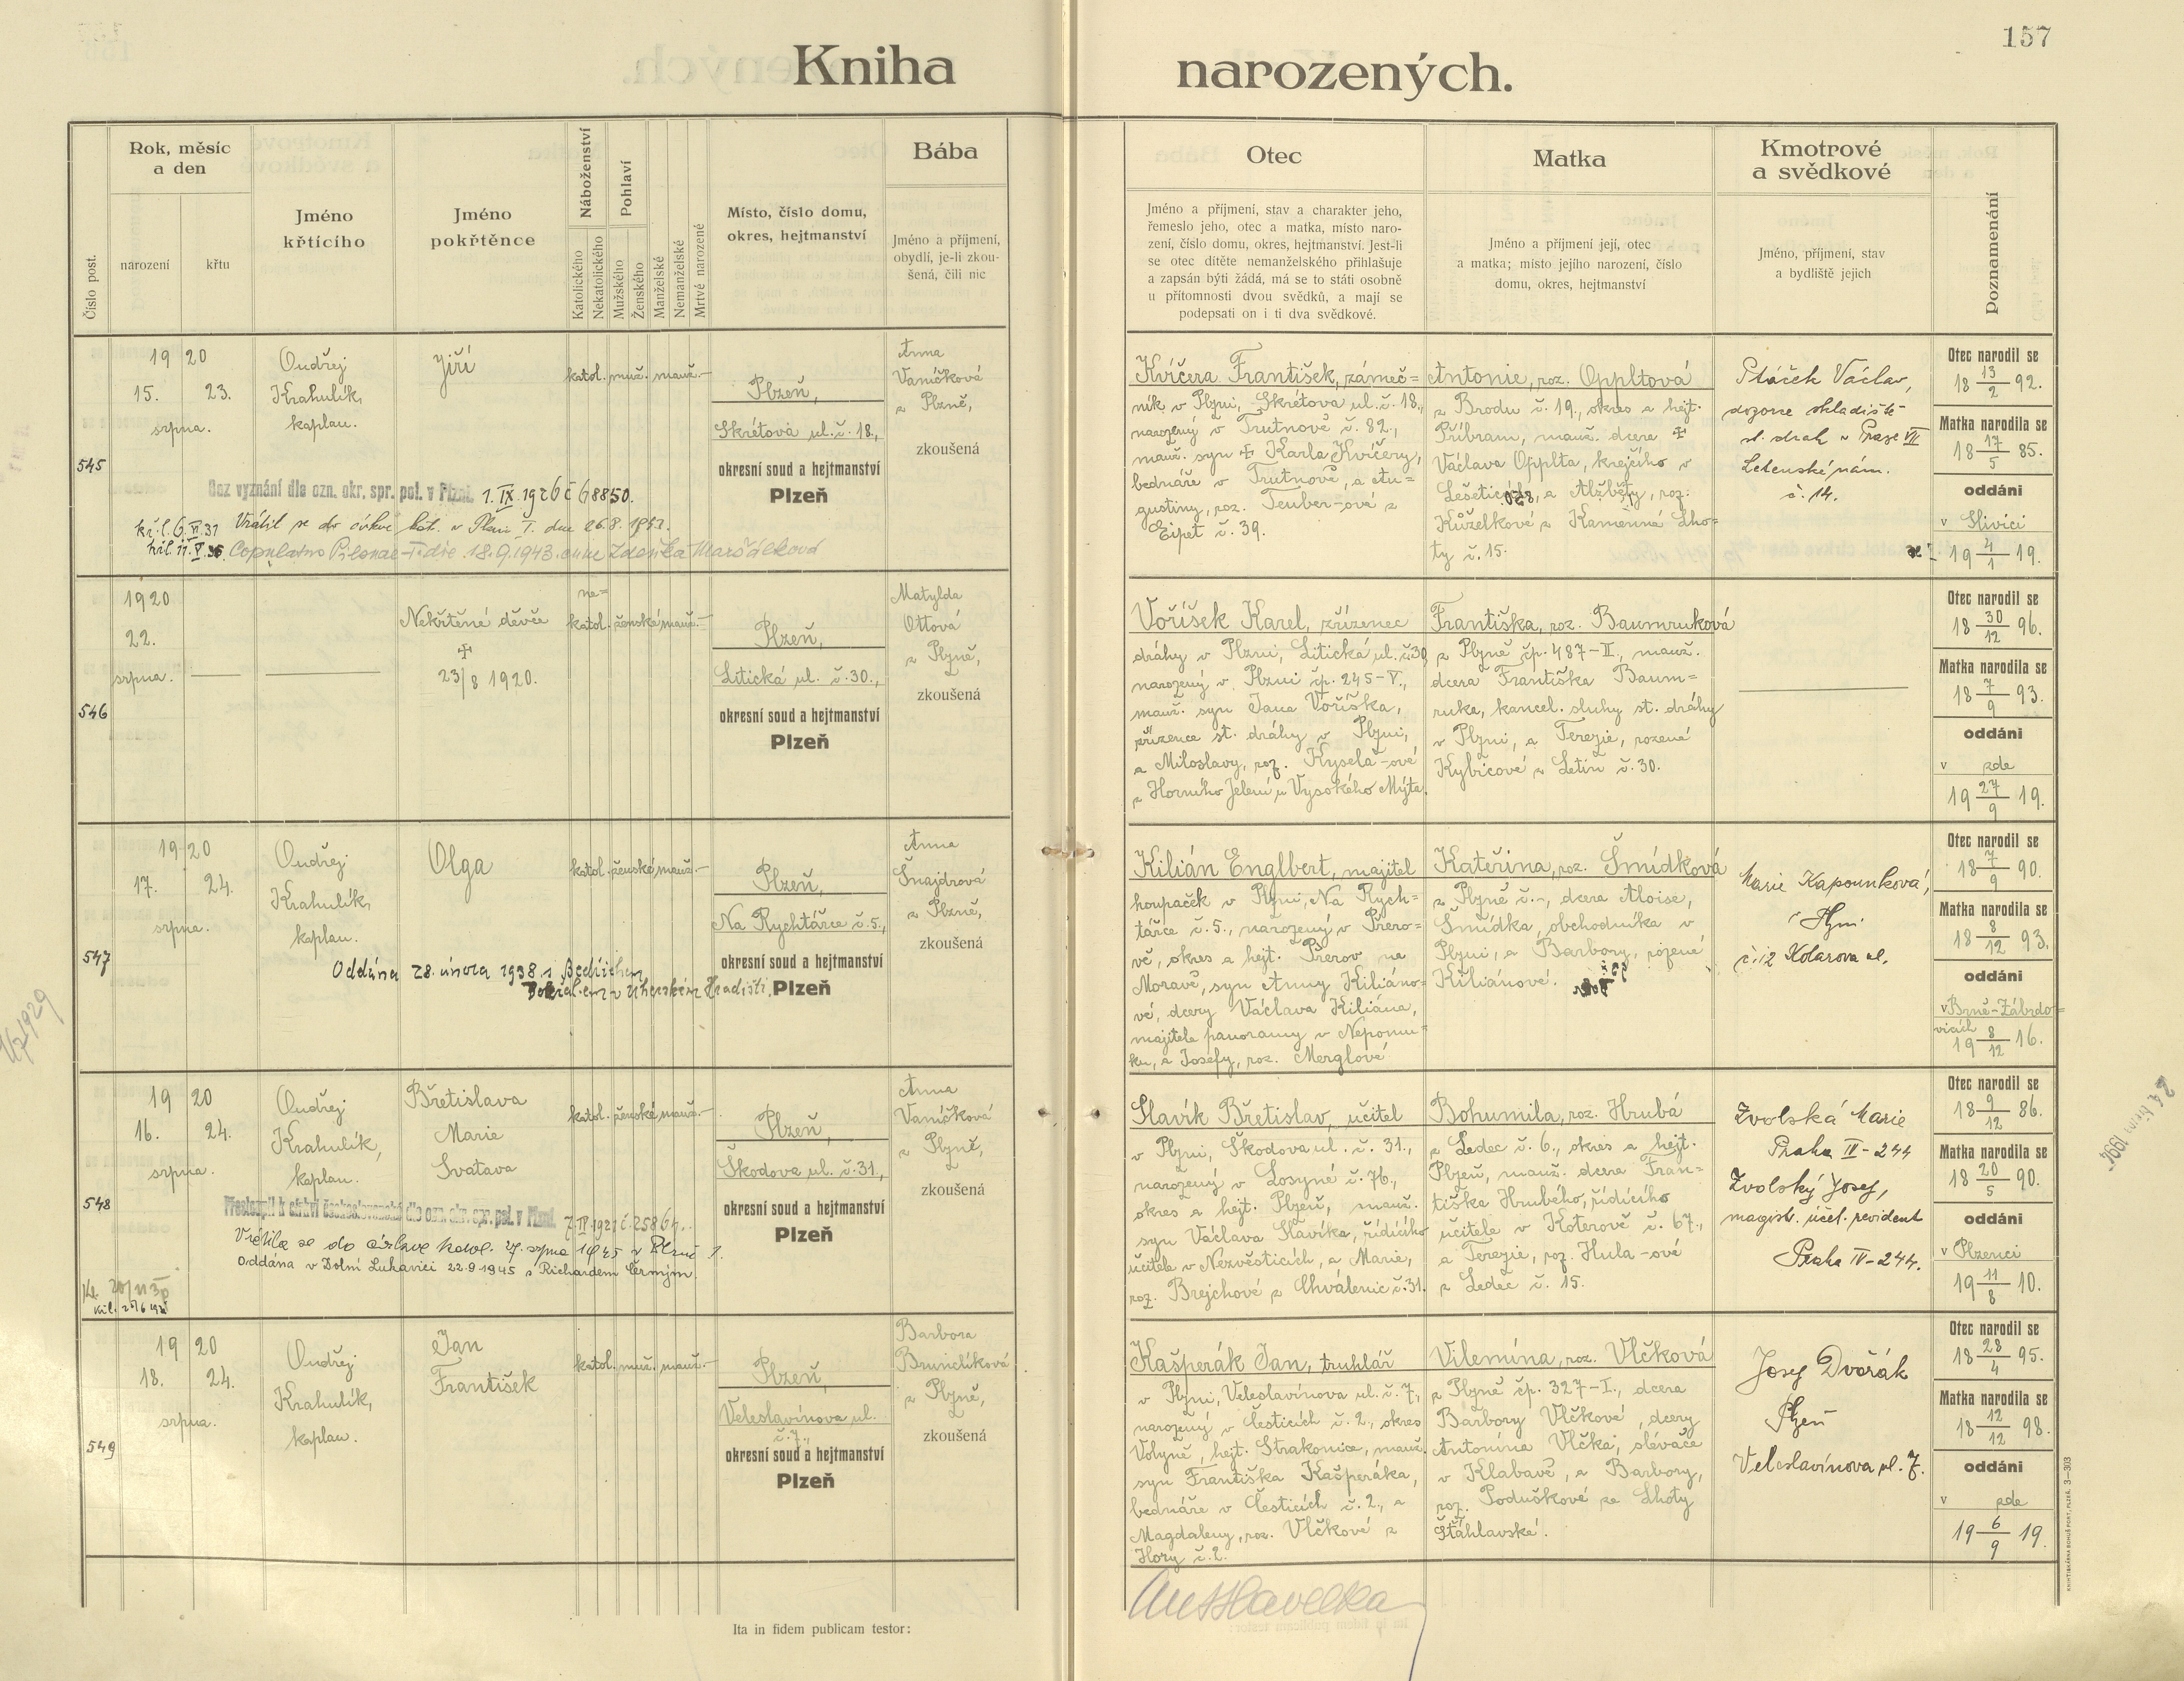 157
Kniha narozených.
Číslo post.
Rok, měsíc
a den
narození
křtu
Jméno
křtícího
Jméno
pokřtěnce
Náboženství
Katolického
Nekatolického
Pohlaví
Mužského
Ženského
Manželské
Nemanželské
Mrtvě narozené
Místo, číslo domu,
okres, hejtmanství
Bába
Jméno a příjmení,
obydlí, je-li zkou-
šená, čili nic
Otec
Jméno a příjmení, stav a charakter jeho,
řemeslo jeho, otec a matka, místo naro-
zení, číslo domu, okres, hejtmanství. Jest-li
se otec dítěte nemanželského přihlašuje
a zapsán býti žádá, má se to státi osobně
u přítomnosti dvou svědků, a mají se
podepsati on i ti dva svědkové.
Matka
Jméno a příjmení její, otec
a matka; místo jejího narození, číslo
domu, okres, hejtmanství
Kmotrové
a svědkové
Jméno, příjmení, stav
a bydliště jejich
Doznamenání
545
19 20
15. 23.
srpna.
Ondřej
Krahulík,
kaplan.
Jiří
katol. muž. manž.
Plzeň,
Skrétova ul. č. 18,
okresní soud a hejtmanství
Plzeň
Anna
Vaníčková
z Plzně,
zkoušená
Bez vyznání dle ozn. okr. spr. pol. v Plzni. 1. IX. 1926 č 68850.
Vrátil se do církve kat. v Plzni I. dne 26.8.
Copulatus Pilsnae-I. die 18.9.1943 cum Zdeňka Maršálková
Kvíčera František, zámeč-
ník v Plzni, Skrétova ul. č. 18.,
narozený v Trutnově č. 82.,
manž. syn ✝ Karla Kvíčery,
bednáře v Trutnově, a Au-
gustiny, roz. Teuber-ové z
Eipet č. 39.
Antonie, roz. Oppltová
z Brodu č. 19., okres a hejt.
Příbram, manž. dcera ✝
Václava Opplta, krejčího v
a Alžběty, roz.
Kůželkové z Kamenné Lho-
ty č. 15.
Ptáček Václav,
dozorce skladiště
st. drah v Praze VII
Letenské nám.
č. 14.
Otec narodil se
18 13/2 92.
Matka narodila se
18 17/5 85.
oddáni
v Slivici
19 4/1 19.
546
1920
22.
srpna.
Nekřtěné děvče
✝
23/8 1920.
ne=
katol. ženské manž.
Plzeň,
Litická ul. č. 30.,
okresní soud a hejtmanství
Plzeň
Matylda
Ottová
z Plzně,
zkoušená
Voříšek Karel, zřízenec
dráhy v Plzni, Litická ul. č. 30,
narozený v Plzni čp. 245-V.,
manž. syn Jana Voříška,
zřízence st. dráhy v Plzni,
a Miloslavy, roz. Kysela-ové
z Horního Jelení u Vysokého Mýta.
Františka, roz. Baumruková
z Plzně čp. 487-II., manž.
dcera Františka Baum-
ruka, kancel. sluhy st. dráhy
v Plzni, a Terezie, rozené
Kybicové z Letin č. 30.
Otec narodil se
18 30/12 96.
Matka narodila se
18 7/9 93.
oddáni
v zde
19 27/9 19.
547
19 20
17. 24.
srpna.
Ondřej
Krahulík,
kaplan.
Olga
katol. ženské manž.
Plzeň,
Na Rychtářce č. 5.,
okresní soud a hejtmanství
Plzeň
Anna
Šnajdrová
z Plzně,
zkoušená
Oddána 28. února 1938 s Bedřichem
v Uherském Hradišti.
Kilián Englbert, majitel
houpaček v Plzni, Na Rych-
tářce č. 5., narozený v Přero-
vě, okres a hejt. Přerov na
Moravě, syn Anny Kiliáno-
vé, dcery Václava Kiliána,
majitele panoramy v Nepomu-
ku, a Josefy, roz. Merglové
Kateřina, roz. Šmídková
z Plzně č. -, dcera Aloise,
Šmídka, obchodníka v
Plzni, a Barbory, rozené
Kiliánové.
Marie Kapounková,
v Plzni
č. 12 Kolarova ul.
Otec narodil se
18 7/9 90.
Matka narodila se
18 8/12 93.
oddáni
v Brně-Zábrdo-
vicích
19 8/12 16.
548
19 20
16. 24.
srpna.
Ondřej
Krahulík,
kaplan.
Břetislava
Marie
Svatava
katol. ženské manž.
Plzeň,
Škodova ul. č. 31.,
okresní soud a hejtmanství
Plzeň
Anna
Vaníčková
z Plzně,
zkoušená
Přestoupil k církvi československé dle ozn. okr. spr. pol. v Plzni.
Vrátila se do církve katol. 27. srpna 1945 v Plzni I.
Oddána v Dolní Lukavici 22.9.1945 s Richardem Černým.
Slavík Břetislav, učitel
v Plzni, Škodova ul. č. 31.,
narozený v Losyně č. 76.,
okres a hejt. Plzeň, manž.
syn Václava Slavíka, řídícího
učitele v Nezvěsticích, a Marie,
roz. Brejchové z Chválenic č. 31.
Bohumila, roz. Hrubá
z Ledec č. 6., okres a hejt.
Plzeň, manž. dcera Fran-
tiška Hrubého, řídícího
učitele v Koterově č. 67.,
a Terezie, roz. Hula-ové
z Ledec č. 15.
Zvolská Marie
Praha IV-244
Zvolský Josef,
magistr. účet. revident
Praha IV-244.
Otec narodil se
18 9/12 86.
Matka narodila se
18 20/5 90.
oddáni
v Plzenci
19 11/8 10.
549
19 20
18. 24.
srpna.
Ondřej
Krahulík,
kaplan.
Jan
František
katol. muž. manž.
Plzeň,
Veleslavínova ul.
č. 7.,
okresní soud a hejtmanství
Plzeň
Barbora
Brunclíková
z Plzně,
zkoušená
Kašperák Jan, truhlář
v Plzni, Veleslavínova ul. č. 7.,
narozený v Česticích č. 2., okres
Volyně, hejt. Strakonice, manž.
syn Františka Kašperáka,
bednáře v Česticích č. 2., a
Magdaleny, roz. Vlčkové z
Hory č. 2.
Vilemína, roz. Vlčková
z Plzně čp. 327-I., dcera
Barbory Vlčkové, dcery
Antonína Vlčka, slévače
v Klabavě, a Barbory,
roz. Poduškové ze Lhoty
Šťáhlavské.
Josef Dvořák
Plzeň
Veleslavínova ul. 7.
Otec narodil se
18 28/4 95.
Matka narodila se
18 12/12 98.
oddáni
v zde
19 6/9 19.
Ita in fidem publicam testor:
KNIHTISKÁRNA BOHUŠ PORT, PLZEŇ. 3—303